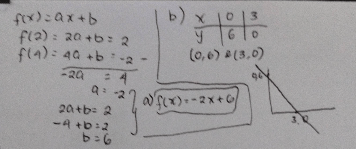 f(x) = ax + b
f(2) = 2a + b = 2
f(4) = 4a + b = -2 -
-2a = 4
a = -2
2a + b = 2
-4 + b = 2
b = 6
a) f(x) = -2x + 6
b) x | 0 | 3
y | 6 | 0
(0,6) & (3,0)
0,6
3,0